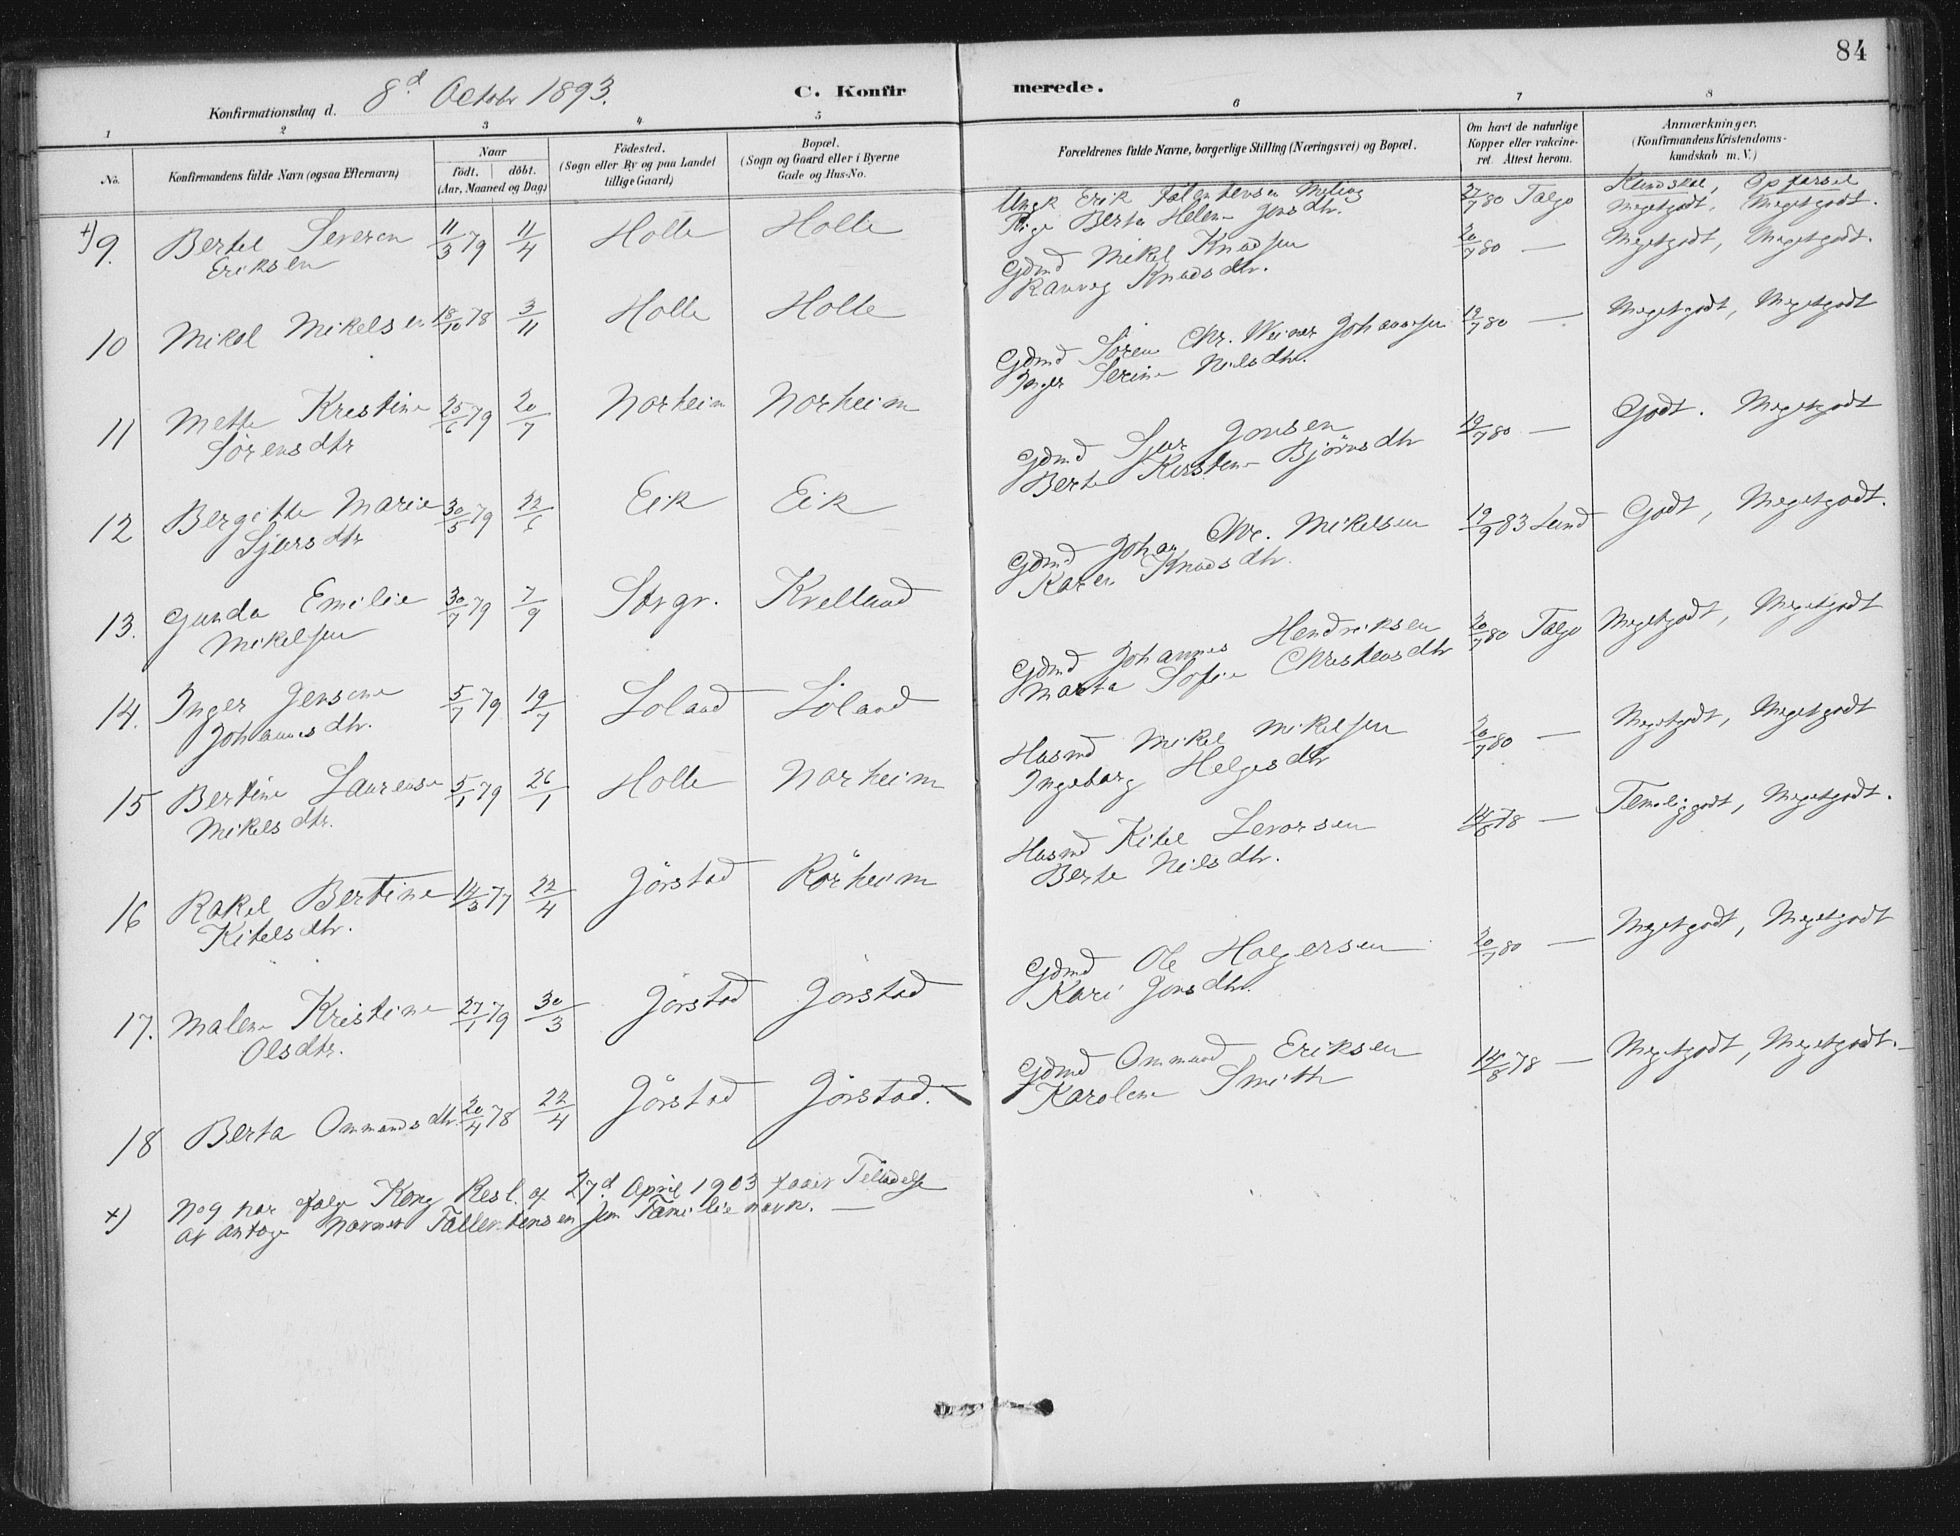 84
Konfirmationsdag d. 8d Octobr 1893.
C. Konfirmerede.
1 2 3 4 5 6 7 8
No.
Konfirmandens fulde Navn (ogsaa Efternavn)
Naar
født. døbt.
(Aar, Maaned og Dag)
Fødested.
(Sogn eller By og paa Landet
tillige Gaard)
Bopæl.
(Sogn og Gaard eller i Byerne
Gade og Hus-No.
Forældrenes fulde Navne, borgerlige Stilling (Næringsvei) og Bopæl.
Om havt de naturlige
Kopper eller vakcine-
ret. Attest herom.
Anmærkninger.
(Konfirmandens Kristendoms-
kundskab m. V.)
Kundskab, Opførsel
+) 9. Bertel Severin Eriksen 11/3 79 11/4 Holle Holle
Ungk Erik
Pige Berta Helene Jonsdtr. 27/7 80 Talgø Megetgodt, Megetgodt.
10 Mikal Mikelsen 18/10 78 3/11 Holle Holle
Gdmd Mikel Knudsen
Ranveg Knudsdtr. 20/7 80 — Megetgodt, Megetgodt.
11 Mette Kristine Sørensdtr 25/6 79 20/7 Norheim Norheim
Gdmd Søren Chr. Weiner Johannsen
Inger Serine Nilsdtr. 19/7 80 — Megetgodt, Megetgodt
12 Bergitte Marie Sjursdtr 30/5 79 22/6 Eik Eik
Gdmd Sjur Jonsen
Berte Kirstine Bjørnsdtr 19/7 80 — Godt. Megetgodt
13. Gunda Emilie Mikelsen 30/7 79 7/9 Stvgr. Kvelland
Gdmd Johan Chr. Mikelsen
Karen Knudsdtr. 19/9 83 Lund Godt, Megetgodt.
14. Inger Jensine Johannesdtr. 5/7 79 19/7 Løland Løland
Gdmd Johannes Hendriksen
Marta Sofie Christensdtr 20/7 80 Talgø Megetgodt, Megetgodt
15 Bertine Laurense Mikelsdtr. 5/1 79 26/1 Holle Norheim
Husmd Mikel Mikelsen
Ingeborg Helgesdtr 20/7 80 — Megetgodt, Megetgodt
16 Rakel Bertine Kitelsdtr. 14/3 77 22/4 Jørstad Rørheim
Husmd Kitel Levorsen
Berte Nilsdtr. 14/8 78 — Temeliggodt, Megetgodt.
17. Malene Kristine Olsdtr. 27/1 79 30/3 Jørstad Jørstad
Gdmd Ole Holgersen
Kari Jonsdtr. 20/7 80 — Megetgodt, Megetgodt
18 Berta Ommundsdtr. 20/4 78 22/4 Jørstad Jørstad.
Gdmd Ommund Eriksen
Karolene Smith 14/8 78 — Megetgodt, Megetgodt.
+) No 9 har ifølge Kong Resl. af 27d April 1903 faaet Tilladelse
at antage Navnet Fallentensen som Familienavn. —